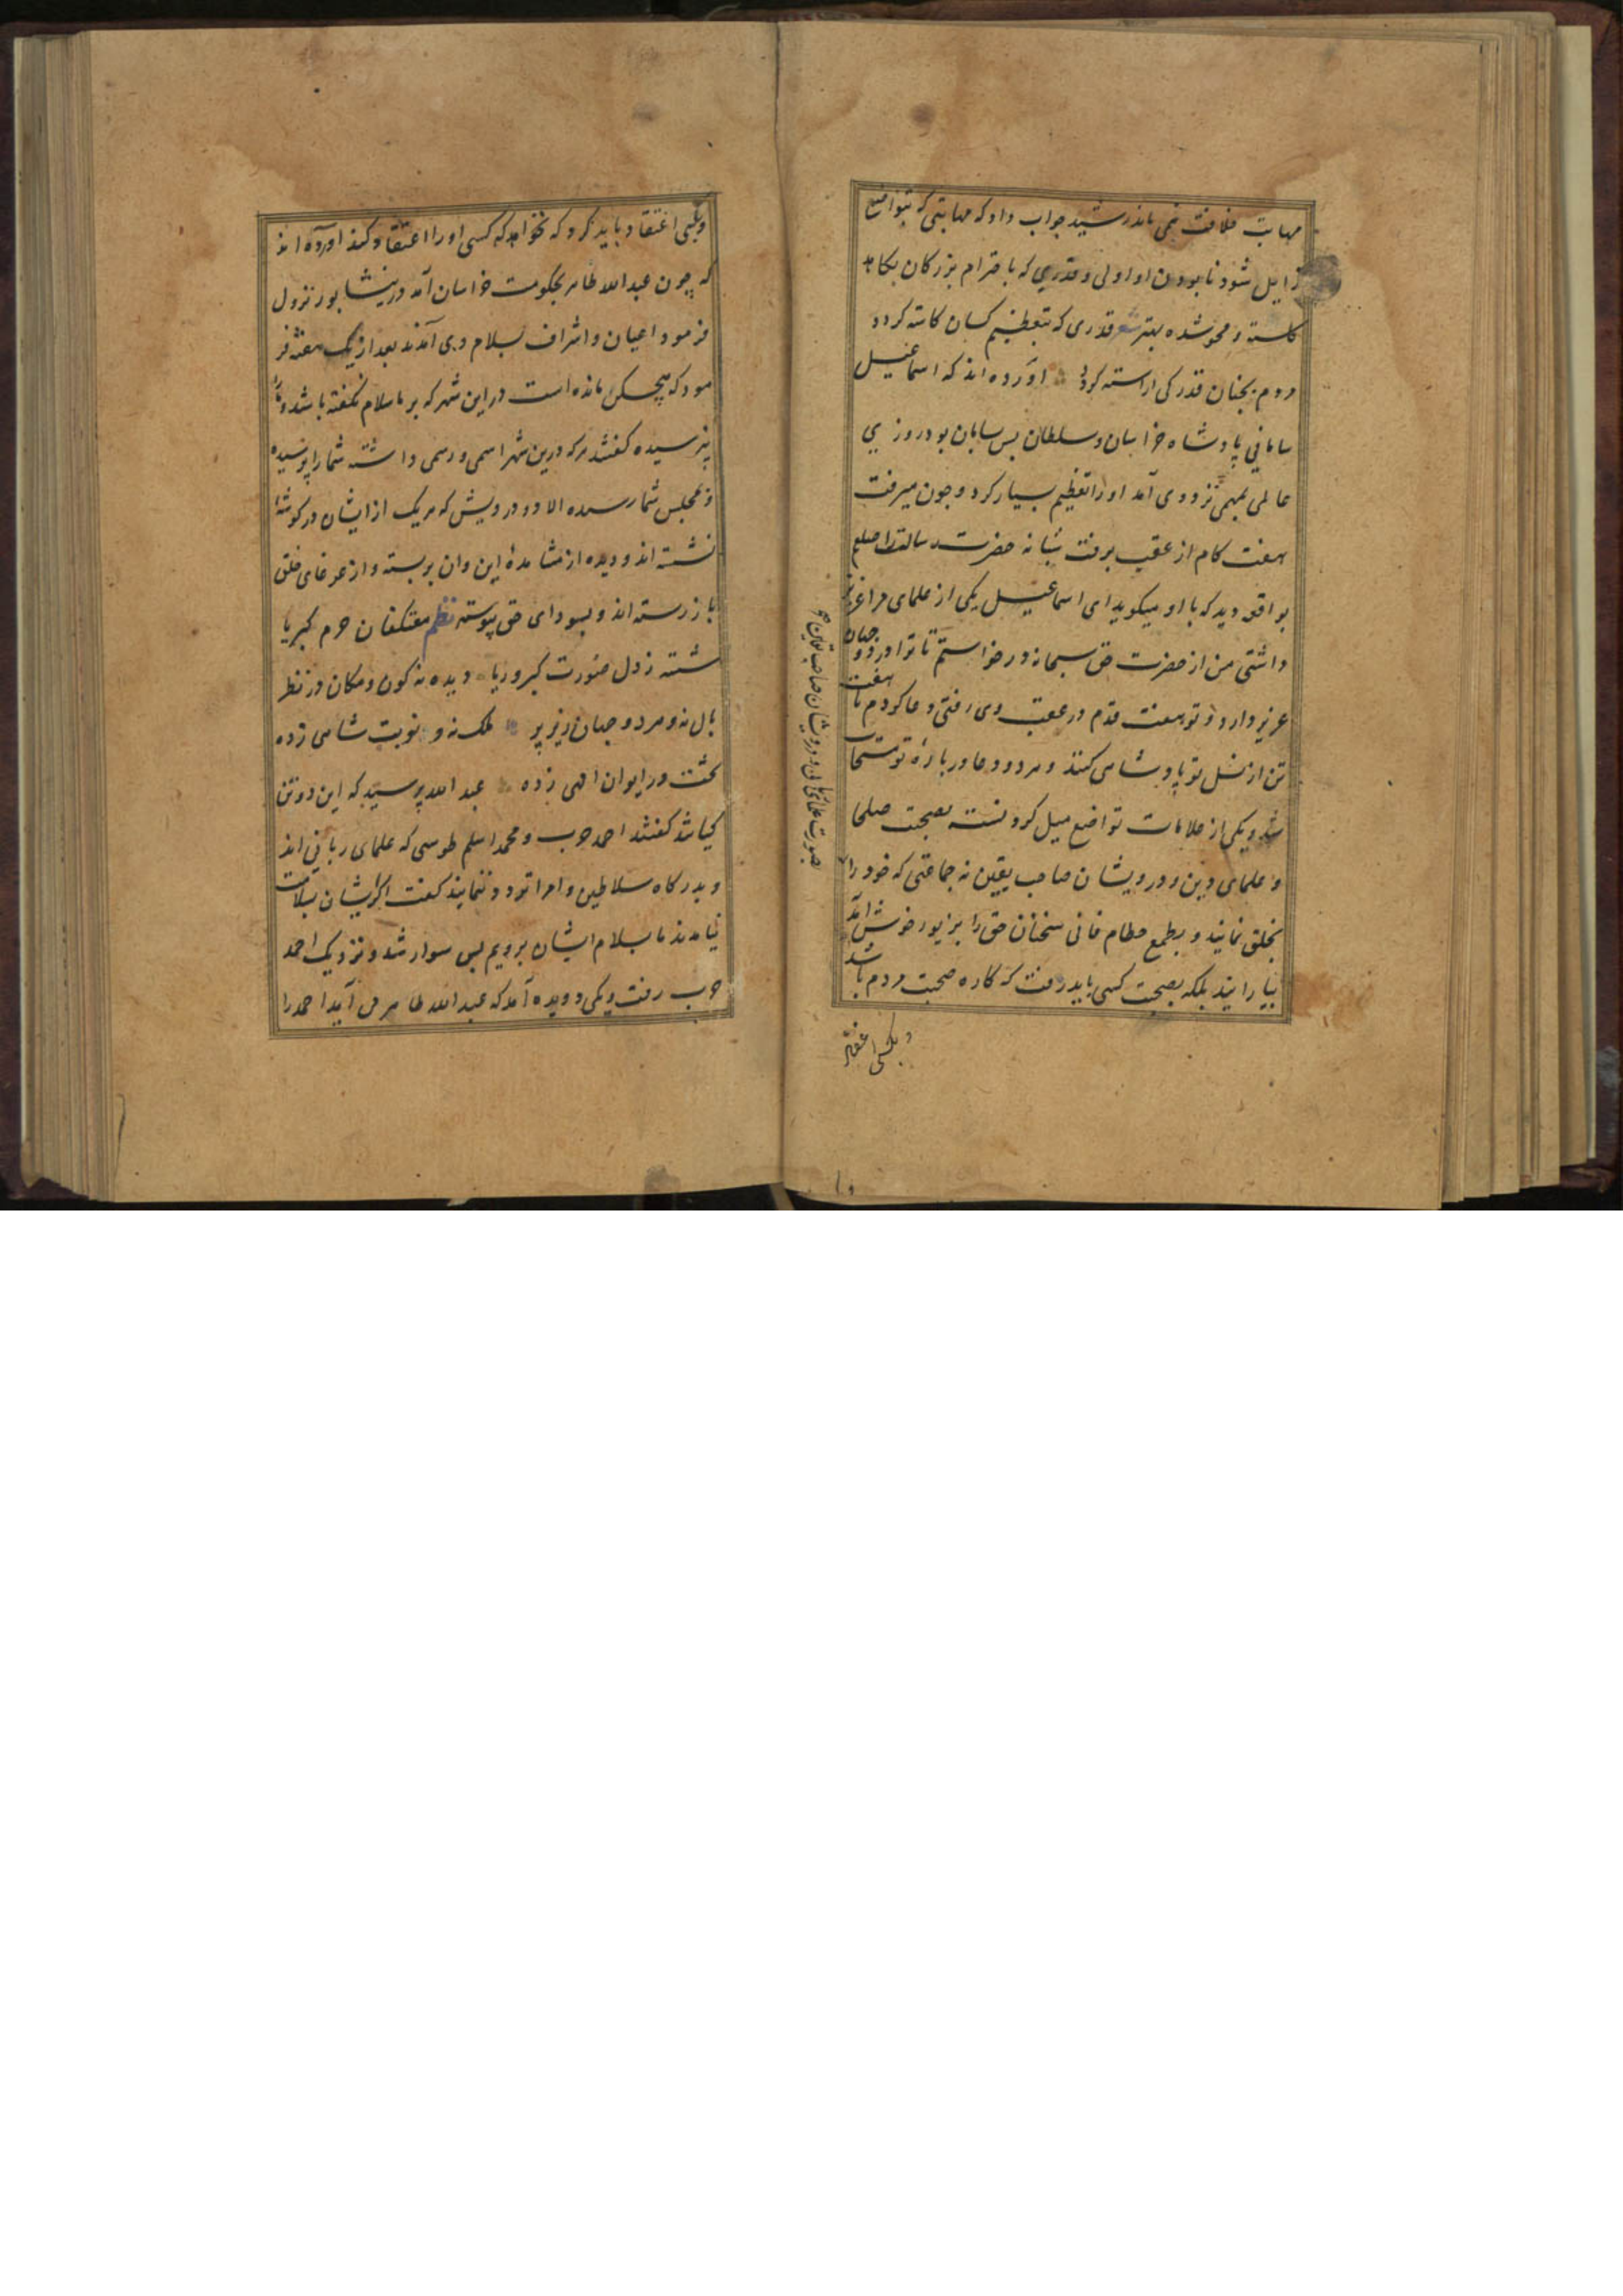 مهابت خلافت نمی ماند رشید جواب داد که مهابتی که بتواضع
زایل شود نابودن او اولی و قدری که باحترام بزرکان بکاهد
کاسته و محو شده بهتر شعر قدری که بتعظیم کسان کاسته کردد
مردم بچنان قدر کی اراسته کردد اورده اند که اسماعیل
سامانی پادشاه خراسان و سلطان بس سامان بود روزی
عالمی بمهمی نزد وی آمد او را تعظیم بسیار کرد و چون میرفت
هفت کام از عقب برفت شبانه حضرت رسالت را صلعم
بواقعه دید که با او میکوید ای اسماعیل یکی از علمای مرا عزیز
داشتی من از حضرت حق سبحانه درخواستم تا ترا در دو جهان
عزیز دارد و تو هفت قدم در عقب وی رفتی دعا کردم تا هفت
تن از نسل تو پادشاهی کنند و هر دو دعا در بارهٔ تو مستجاب
شد و یکی از علامات تواضع میل کردنست بصحبت صلحا
و علمای دین و درویشان صاحب یقین نه جماعتی که خود را
بخلق نمایند و بطمع حطام فانی سخنان حق را بزیور خوش آمد
بیارایند بلکه بصحبت کسی باید رفت که کاره صحبت مردم باشد
و بکسی اعتقاد
وبکسی اعتقاد باید کرد که نخواهد که کسی او را اعتقاد کند اورده اند
که چون عبد الله طاهر بحکومت خراسان آمد در نیشابور نزول
فرمود اعیان و اشراف بسلام وی آمدند بعد از یک هفته فر
مود که هیچکس مانده است در این شهر که بر ما سلام نکفته باشد و ما را
نپرسیده کفتند هر که درین شهر اسمی و رسمی داشته شما را پرسیده
و بمجلس شما رسیده الا دو درویش که هر یک از ایشان در کوشهٔ
نشسته اند و دیده از مشاهدهٔ این وان بربسته و از غوغای خلق
باز رسته اند و بسودای حق پیوسته نظم معتکفان حرم کبریا
شسته ز دل صورت کبر و ریا دیده نه کون و مکان در نظر
بال نه و هر دو جهان زیر پر ملک نه و نوبت شاهی زده
تخت در ایوان الهی زده عبد الله پرسید که این دو تن
کیانند کفتند احمد حرب و محمد اسلم طوسی که علمای ربانی اند
و بدرکاه سلاطین و امرا تردد ننمایند کفت اکر ایشان بسلام ما
نیامدند ما بسلام ایشان برویم پس سوار شد و نزدیک احمد
حرب رفت و یکی دویده آمد که عبد الله طاهر می آید احمد را